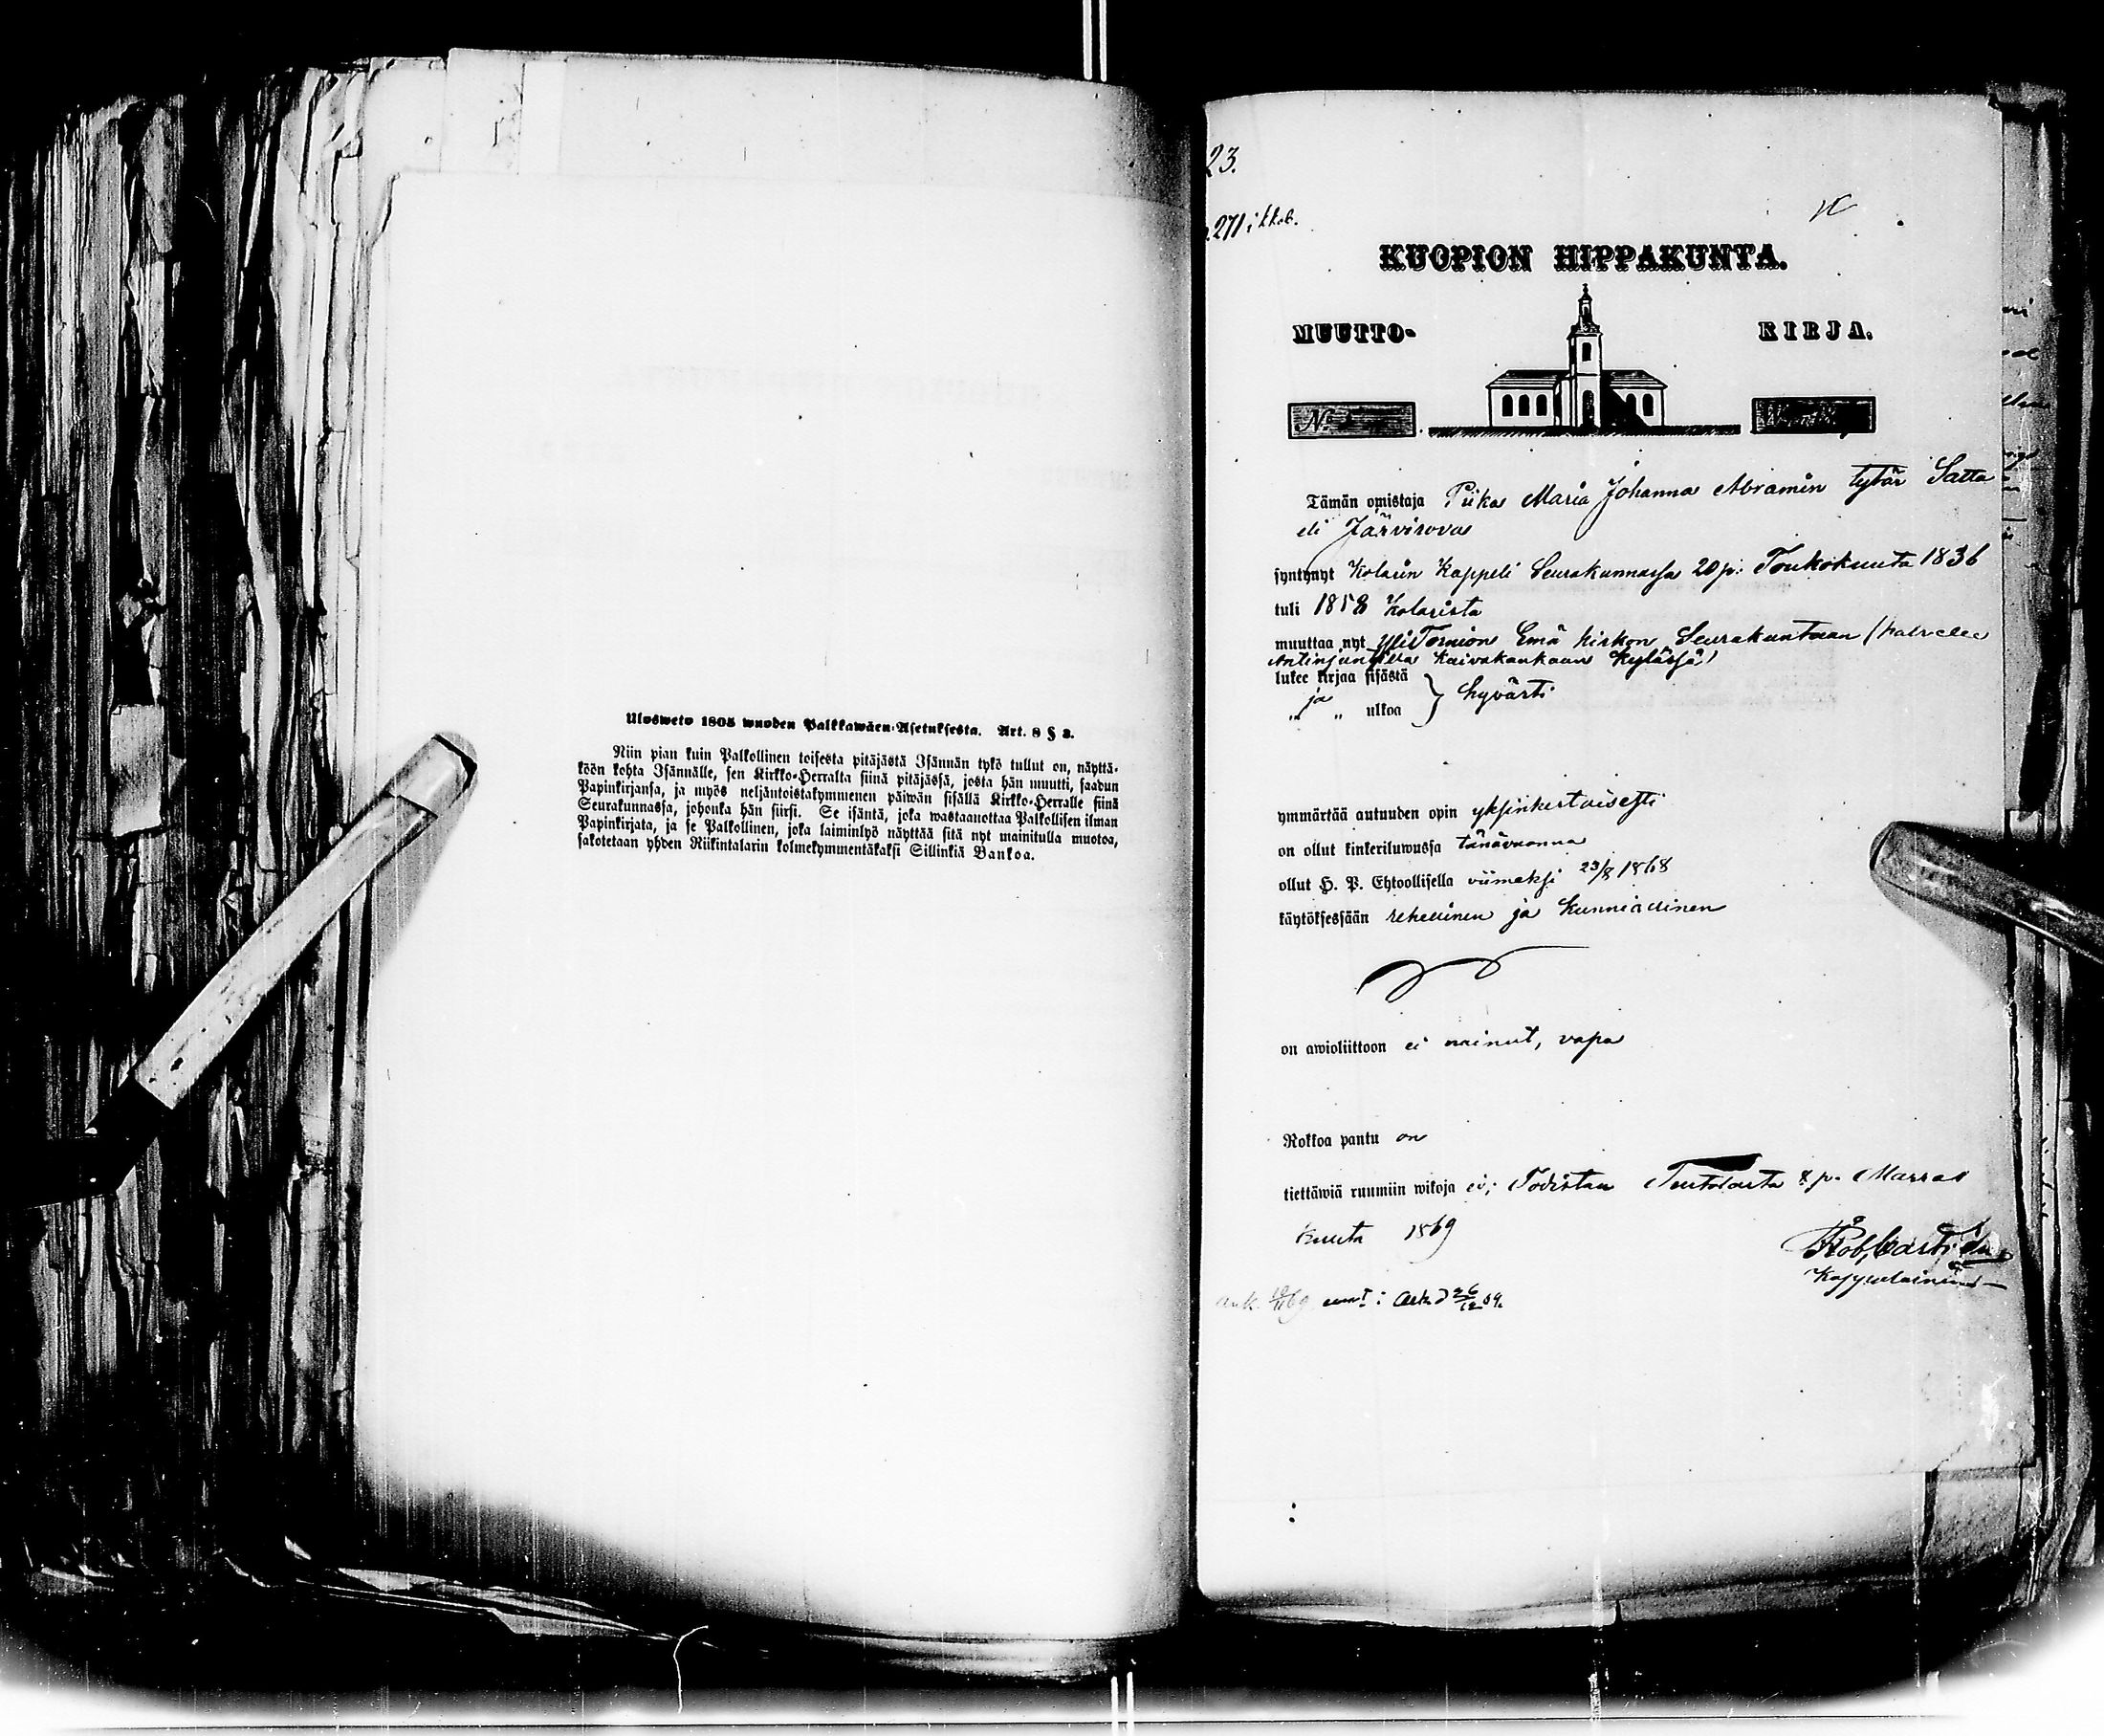 Ulosweto 1805 wuoden Palkkawäen-Asetuksesta. Art. 8 § 3.
Niin pian kuin Palkollinen toisesta pitäjästä Isännän tykö tullut on, näyttä-
köön kohta Isännälle, sen Kirkko-Herralta siinä pitäjässä, josta hän muutti, saadun
Papinkirjansa, ja myös neljäntoistakymmenen päiwän sisällä Kirkko-Herralle siinä
Seurakunnassa, johonka hän siirsi. Se isäntä, joka wastaanottaa Palkollisen ilman
Papinkirjata, ja se Palkollinen, joka laiminlyö näyttää sitä nyt mainitulla muotoa,
sakotetaan yhden Riikintalarin kolmekymmentäkaksi Sillinkiä Bankoa.
23.
271 i kkob.
KUOPION HIPPAKUNTA.
MUUTTO- KIRJA.
No
Tämän omistaja Piika Maria Johanna Abramin tytär Satta
eli Järvirova
syntynyt Kolarin Kappeli Seurakunnassa 20 p. Toukokuuta 1836
tuli 1858 Kolarista
muuttaa nyt YliTornion Emä kirkon Seurakuntaan (palvelee
Antinjuntilla Kaivakankaan kylässä)
lukee kirjaa sisästä
ja
„ „ ulkoa } hyvästi
ymmärtää autuuden opin yksinkertaisesti
on ollut kinkeriluwussa tänävuonna
ollut H. P. Ehtoollisella viimeksi 23/8 1868
käytöksessään rehellinen ja kunniallinen
on awioliittoon ei nainut, vapa
Rokkoa pantu on
tiettäwiä ruumiin wikoja ei; Todistan Turtolasta 8 p. Marras
kuuta 1869
Rob, Castrén
Kappalainen
ank. 12/11 69